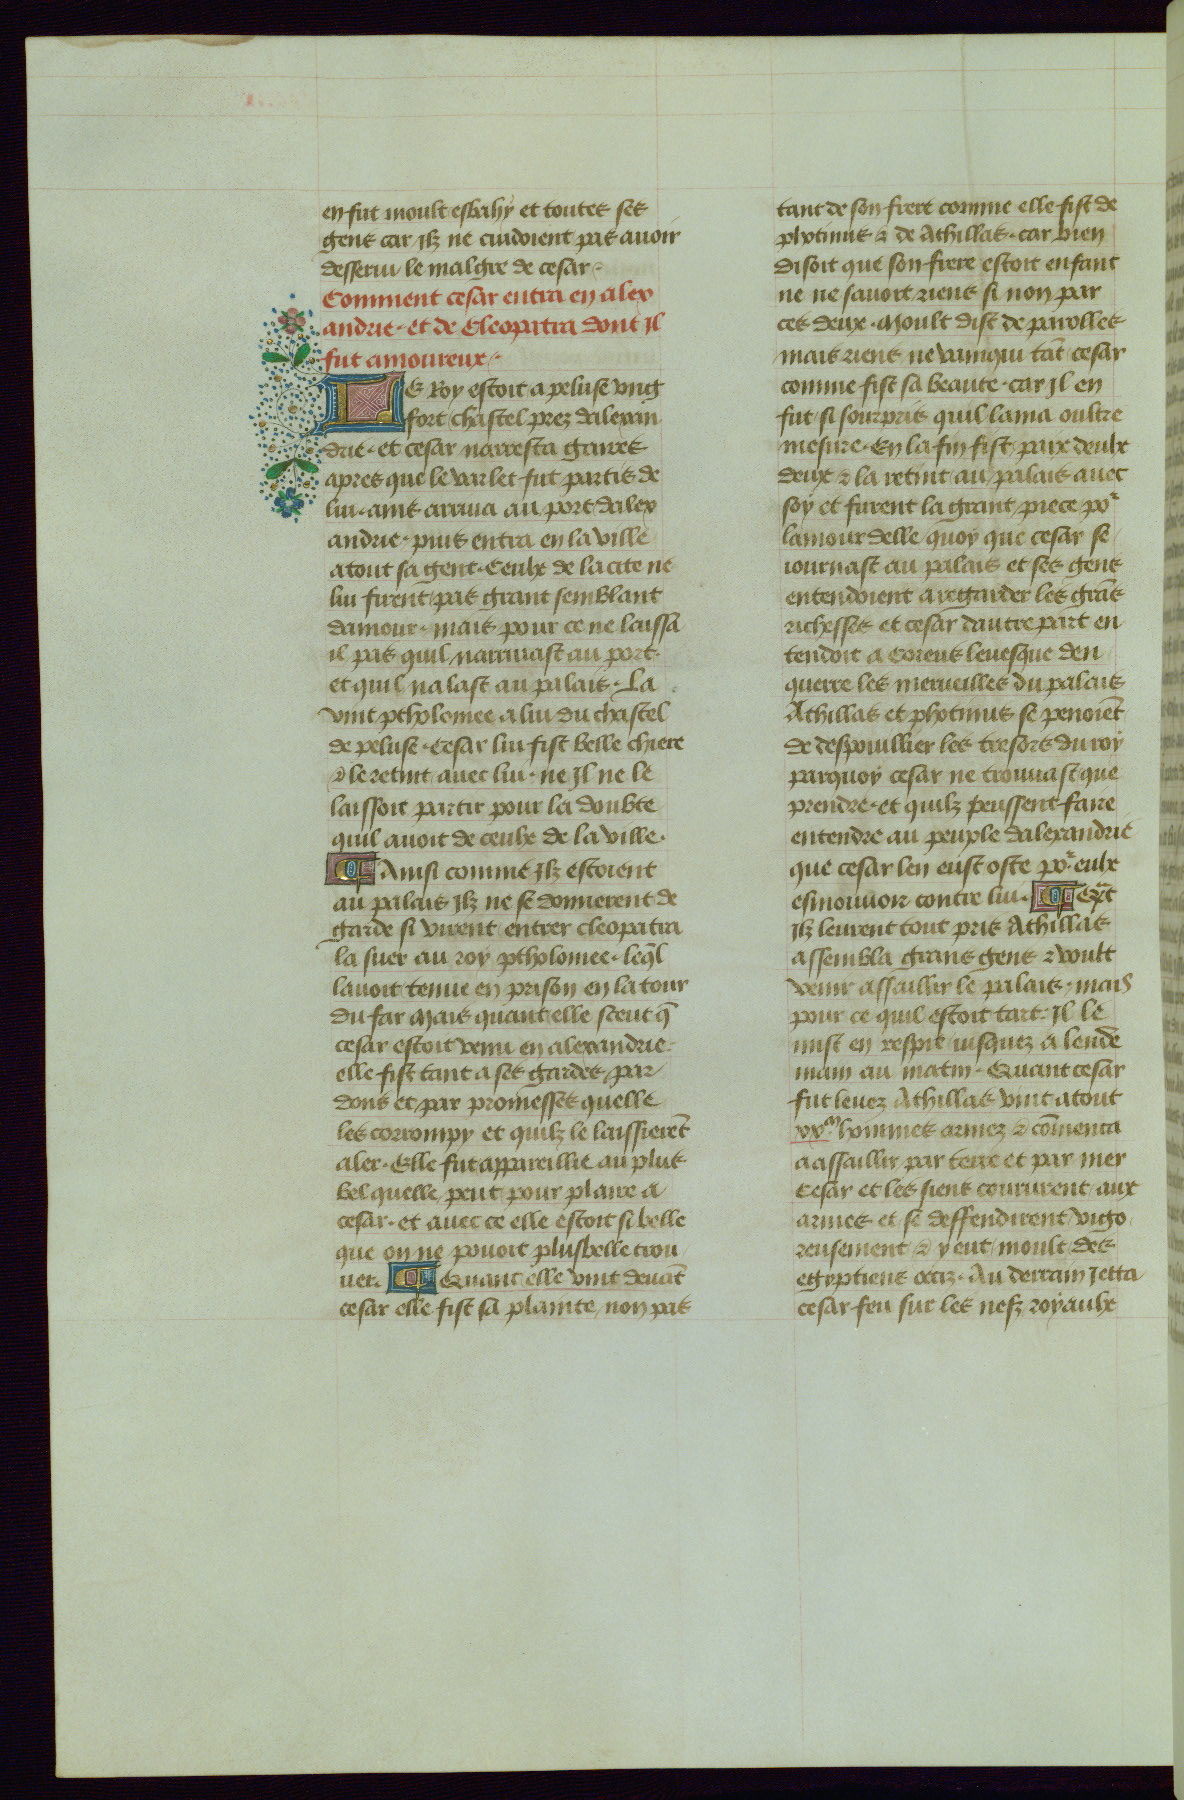 en fut moult esbahy et toutes ses
gens car Ilz ne cuidoient pas auoir
desserui le malgre de cesar
Comment cesar entra en alex
andrie · et de Cleopatra dont Il
fut amoureux
LE Roy estoit a peluse vng
fort chastel prez dalexan
drie · et cesar narresta gaires
apres que le varlet fut partis de
lui · ains arriua au port dalex
andrie · puis entra en la ville
atout sa gent · Ceulx de la cite ne
lui firent pas grant semblant
damour · mais pour ce ne laissa
il pas quil narriuast au port ·
et quil nalast au palais · La
vint ptholomee a lui du chastel
de peluse · Cesar lui fist belle chiere
& le retint auec lui · ne Il ne le
laissoit partir pour la doubte
quil auoit de ceulx de la ville ·
Ainsi comme Ilz estoient
au palais Ilz ne se donnerent de
garde si virent entrer cleopatra
la suer au roy ptholomee · leq̄l
lauoit tenue en prison en la tour
du far Mais quant elle sceut q̄
cesar estoit venu en alexandrie ·
elle fist tant a ses gardes par
dons et par promesses quelle
les corrompy et quilz le laissierēt
aler · Elle fut appareillie au plus
bel quelle peut pour plaire a
cesar · et auec ce elle estoit si belle
que on ne pouoit plusbelle trou
uer · Quant elle vint deuāt
cesar elle fist sa plainte non pas
tant de son frere comme elle fist de
photinus & de Athillas · car bien
disoit que son frere estoit enfant
ne ne sauoit riens si non par
ces deux · Moult dist de parolles
mais riens ne vainqui tāt cesar
comme fist sa beaute · car Il en
fut si sourpris quil lama oultre
mesure · En la fin fist paix deulx
deux & la retint au palais auec
soy et furent la grant piece por
lamour delle quoy que cesar se
iournast au palais et ses gens
entendoient a regarder les grās
richesses et cesar dautre part en
tendoit a Coreus leuesque den
querre les merueilles du palais
Athillas et photinus se penoiēt
de despouillier les tresors du roy
parquoy cesar ne trouuast que
prendre · et quilz peussent faire
entendre au peuple dalexandrie
que cesar len eust oste por eulx
esmouuoir contre lui ·
Ilz leurent tout pris Athillas
assembla grans gens & voult
venir assaillir le palais · mais
pour ce quil estoit tart · Il le
mist en respit iusquez a lende
main au matin · Quant cesar
fut leuez Athillas vint atout
xxm hommes armez & cōmenca
a assaillir par terre et par mer
Cesar et les siens coururent aux
armes et se deffendirent vigo
reusement & y eut moult des
egyptiens occiz · Au derrain Jetta
cesar feu sur les nefz royaulx